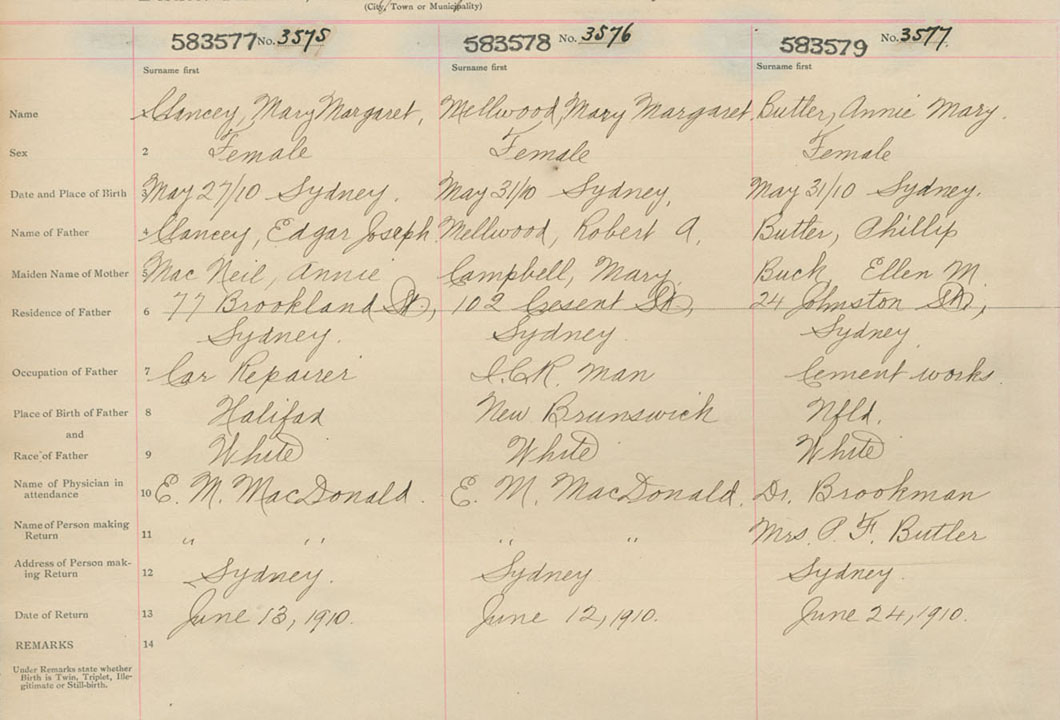 (City, Town or Municipality)
583577 No. 3575 583578 No. 3576 583579 No. 3577
Surname first Surname first Surname first
Name Clancey, Mary Margaret, Mellwood, Mary Margaret Butler, Annie Mary.
Sex 2 Female Female Female
Date and Place of Birth 3 May 27/10 Sydney. May 31/10 Sydney, May 31/10 Sydney.
Name of Father 4 Clancey, Edgar Joseph. Mellwood, Robert A. Butler, Phillip
Maiden Name of Mother 5 Mac Neil, Annie Campbell, Mary Buck, Ellen M
Residence of Father 6 77 Brookland St, 102 Cresent St, 24 Johnston St,
Sydney. Sydney. Sydney
Occupation of Father 7 Car Repairer I.C.R. Man Cement works.
Place of Birth of Father 8 Halifax New Brunswick Nfld.
and
Race of Father 9 White White White
Name of Physician in
attendance 10 E. M. MacDonald. E. M. MacDonald. Dr. Brookman
Name of Person making
Return 11 " " " " Mrs. P. F. Butler
Address of Person mak-
ing Return 12 Sydney. Sydney Sydney.
Date of Return 13 June 13, 1910. June 12, 1910. June 24, 1910.
REMARKS 14
Under Remarks state whether
Birth is Twin, Triplet, Ille-
gitimate or Still-birth.